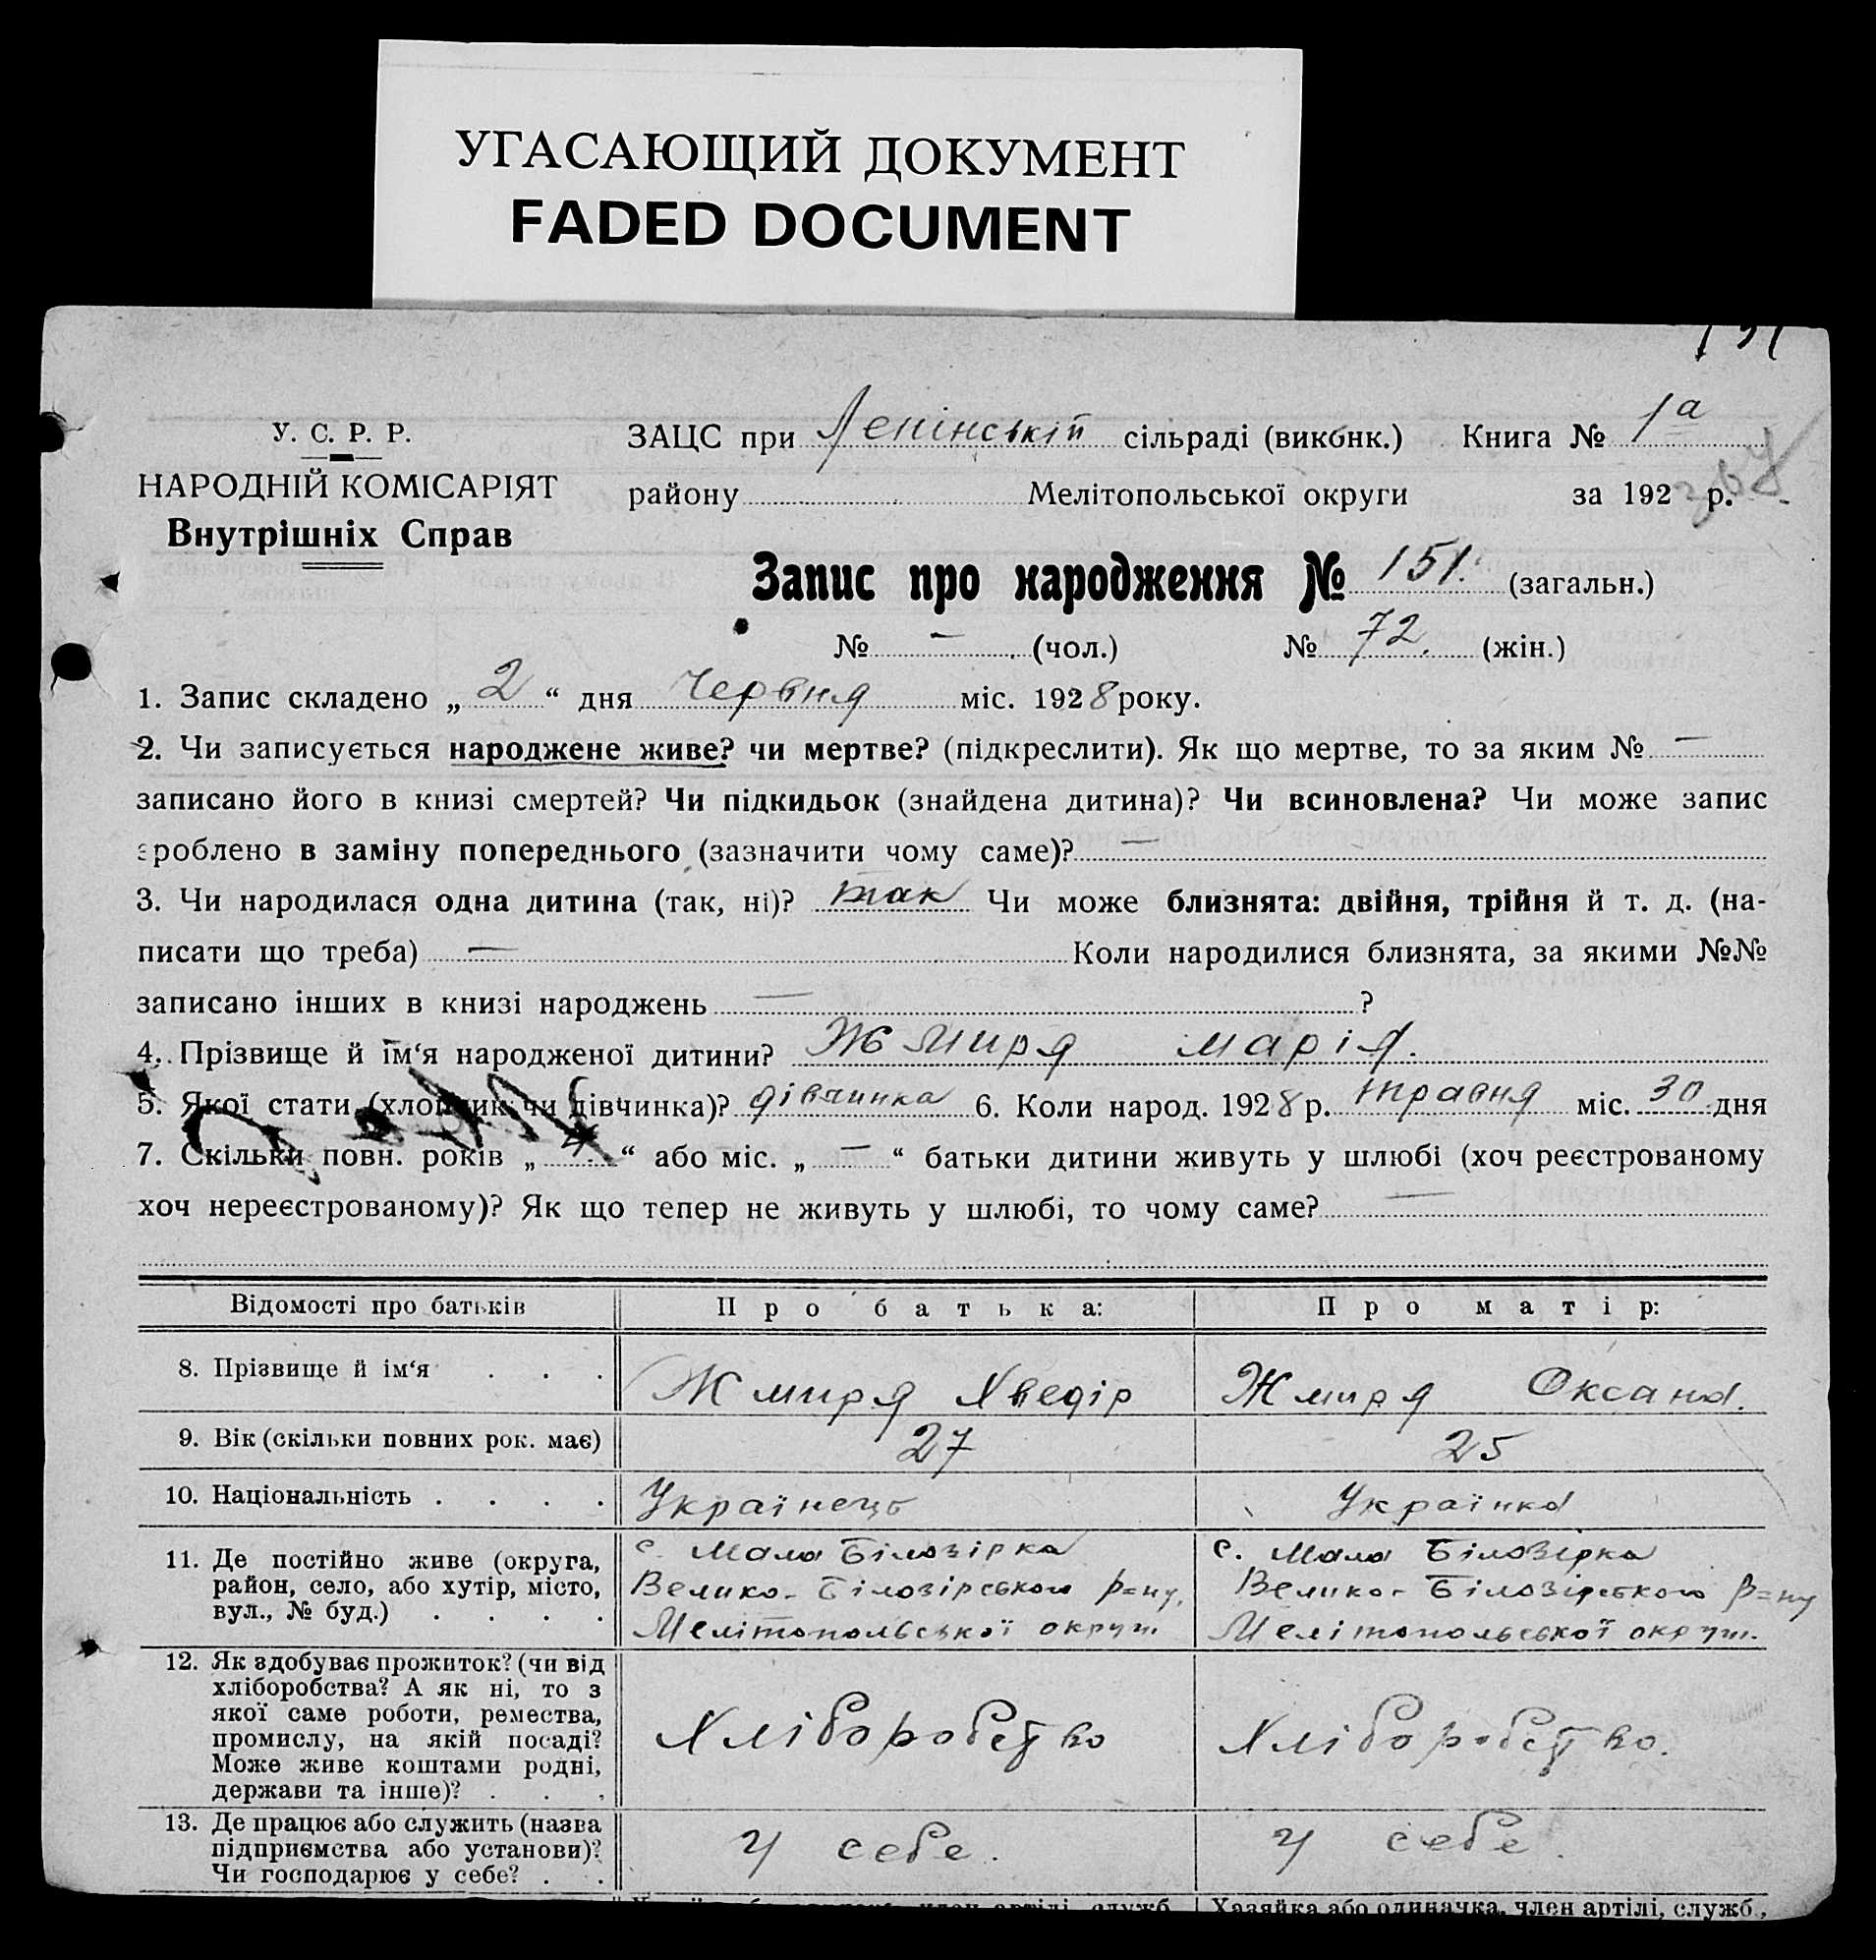 УГАСАЮЩИЙ ДОКУМЕНТ
FADED DOCUMENT
У. С. Р. Р.
НАРОДНІЙ КОМІСАРІЯТ
Внутрішніх Справ
ЗАЦС при Ленінській сільраді (виконк.) Книга № 1а
району Мелітопольської округи за 192 р.
Запис про народження № 151. (загальн.)
№ — (чол.) № 72. (жін.)
1. Запис складено „ 2 “ дня Червня міс. 1928 року.
2. Чи записується народжене живе? чи мертве? (підкреслити). Як що мертве, то за яким № —
записано його в книзі смертей? Чи підкидьок (знайдена дитина)? Чи всиновлена? Чи може запис
зроблено в заміну попереднього (зазначити чому саме)? —
3. Чи народилася одна дитина (так, ні)? так Чи може близнята: двійня, трійня й т. д. (на-
писати що треба) — Коли народилися близнята, за якими №№
записано інших в книзі народжень — ?
4. Прізвище й ім'я народженої дитини? Жмиря Марія.
5. Якої стати (хлопчик чи дівчинка)? дівчинка 6. Коли народ. 1928 р. травня міс. 30 дня
7. Скільки повн. років „ 4 “ або міс. „ — “ батьки дитини живуть у шлюбі (хоч реєстрованому
хоч нереєстрованому)? Як що тепер не живуть у шлюбі, то чому саме? —
Відомості про батьків Про батька: Про матір:
8. Прізвище й ім'я . . . Жмиря Хведір Жмиря Оксана.
9. Вік (скільки повних рок. має) 27 25
10. Національність . . . . Українець Українка
11. Де постійно живе (округа, район, село, або хутір, місто, вул., № буд.) . . . .
с. Мала Білозірка
Велико-Білозірського р=ну,
Мелітопольської округи.
с. Мала Білозірка
Велико-Білозірського р=ну
Мелітопольської округи.
12. Як здобуває прожиток? (чи від
хліборобства? А як ні, то з
якої саме роботи, ремества,
промислу, на якій посаді?
Може живе коштами родні,
держави та інше)? . . .
Хліборобство Хліборобство.
13. Де працює або служить (назва
підприємства або установи)?
Чи господарює у себе? . .
У себе. У себе.
член артілі, служб. Хазяйка або одиначка, член артілі, служб.,